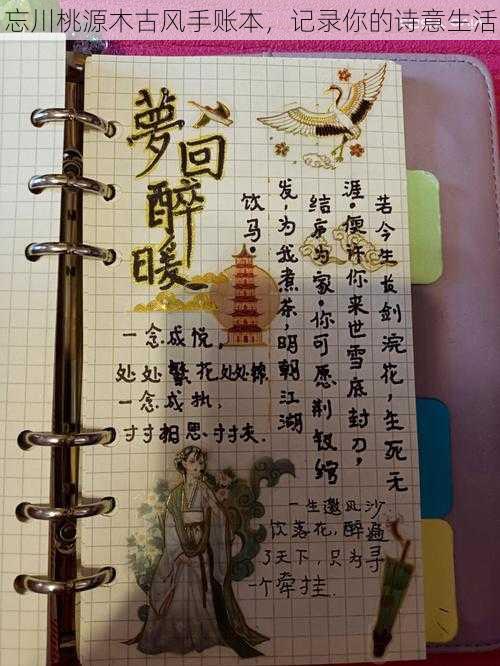 忘川桃源木古风手账本，记录你的诗意生活
夢回
醉暖
若今生长剑浣花，生死无
涯。便许你来世雪底封刀，
结束为家。你可愿荆钗绾
发，为我煮茶，明朝江湖
饮马。
一念成悦，
处处繁花处处锦
一念成执，
寸寸相思寸寸灰.
一生邀风沙
饮落花，醉遍
了天下，只为寻
一个牵挂.